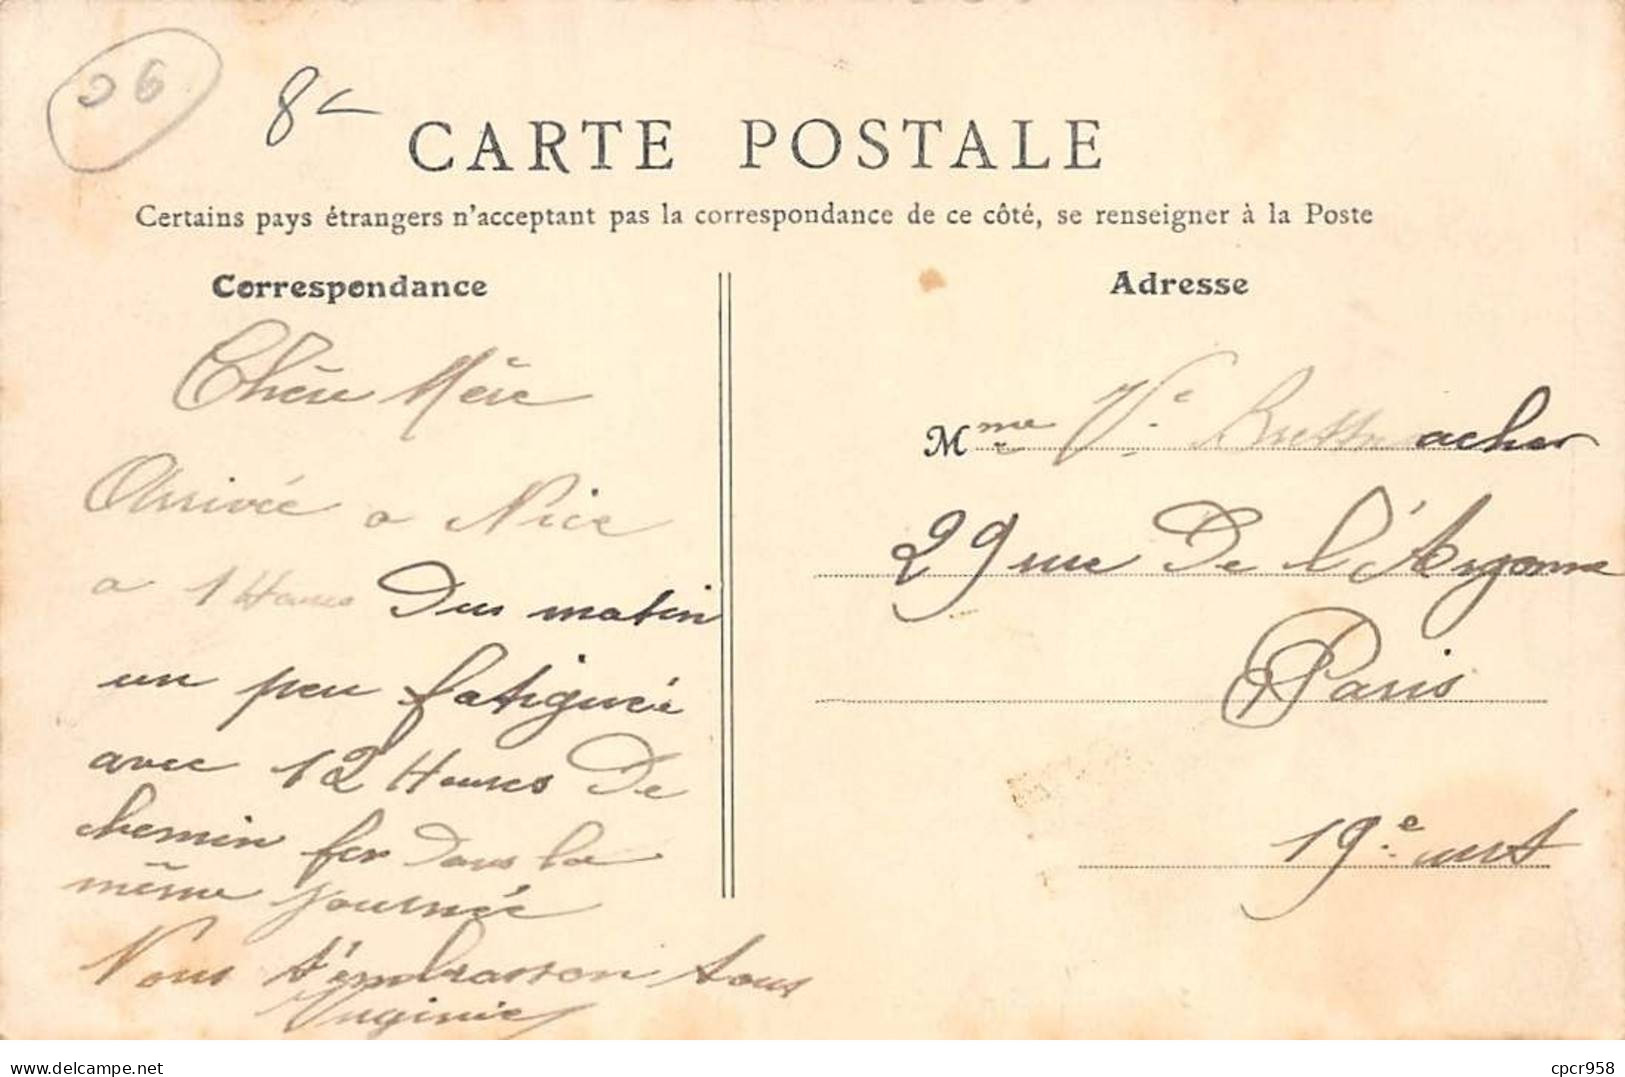 06
8
CARTE POSTALE
Certains pays étrangers n'acceptant pas la correspondance de ce côté, se renseigner à la Poste
Correspondance
Chère Mère
Arrivée a Nice
a 1 Heures Dus matin
un peu fatiguée
avec 12 Heures De
chemin fer Dans la
même journée
Nous t'embrasson tous
Virginie
Adresse
Mme Ve
29 rue De l'Argonne
Paris
19e arrt
www.delcampe.net
cpcr958